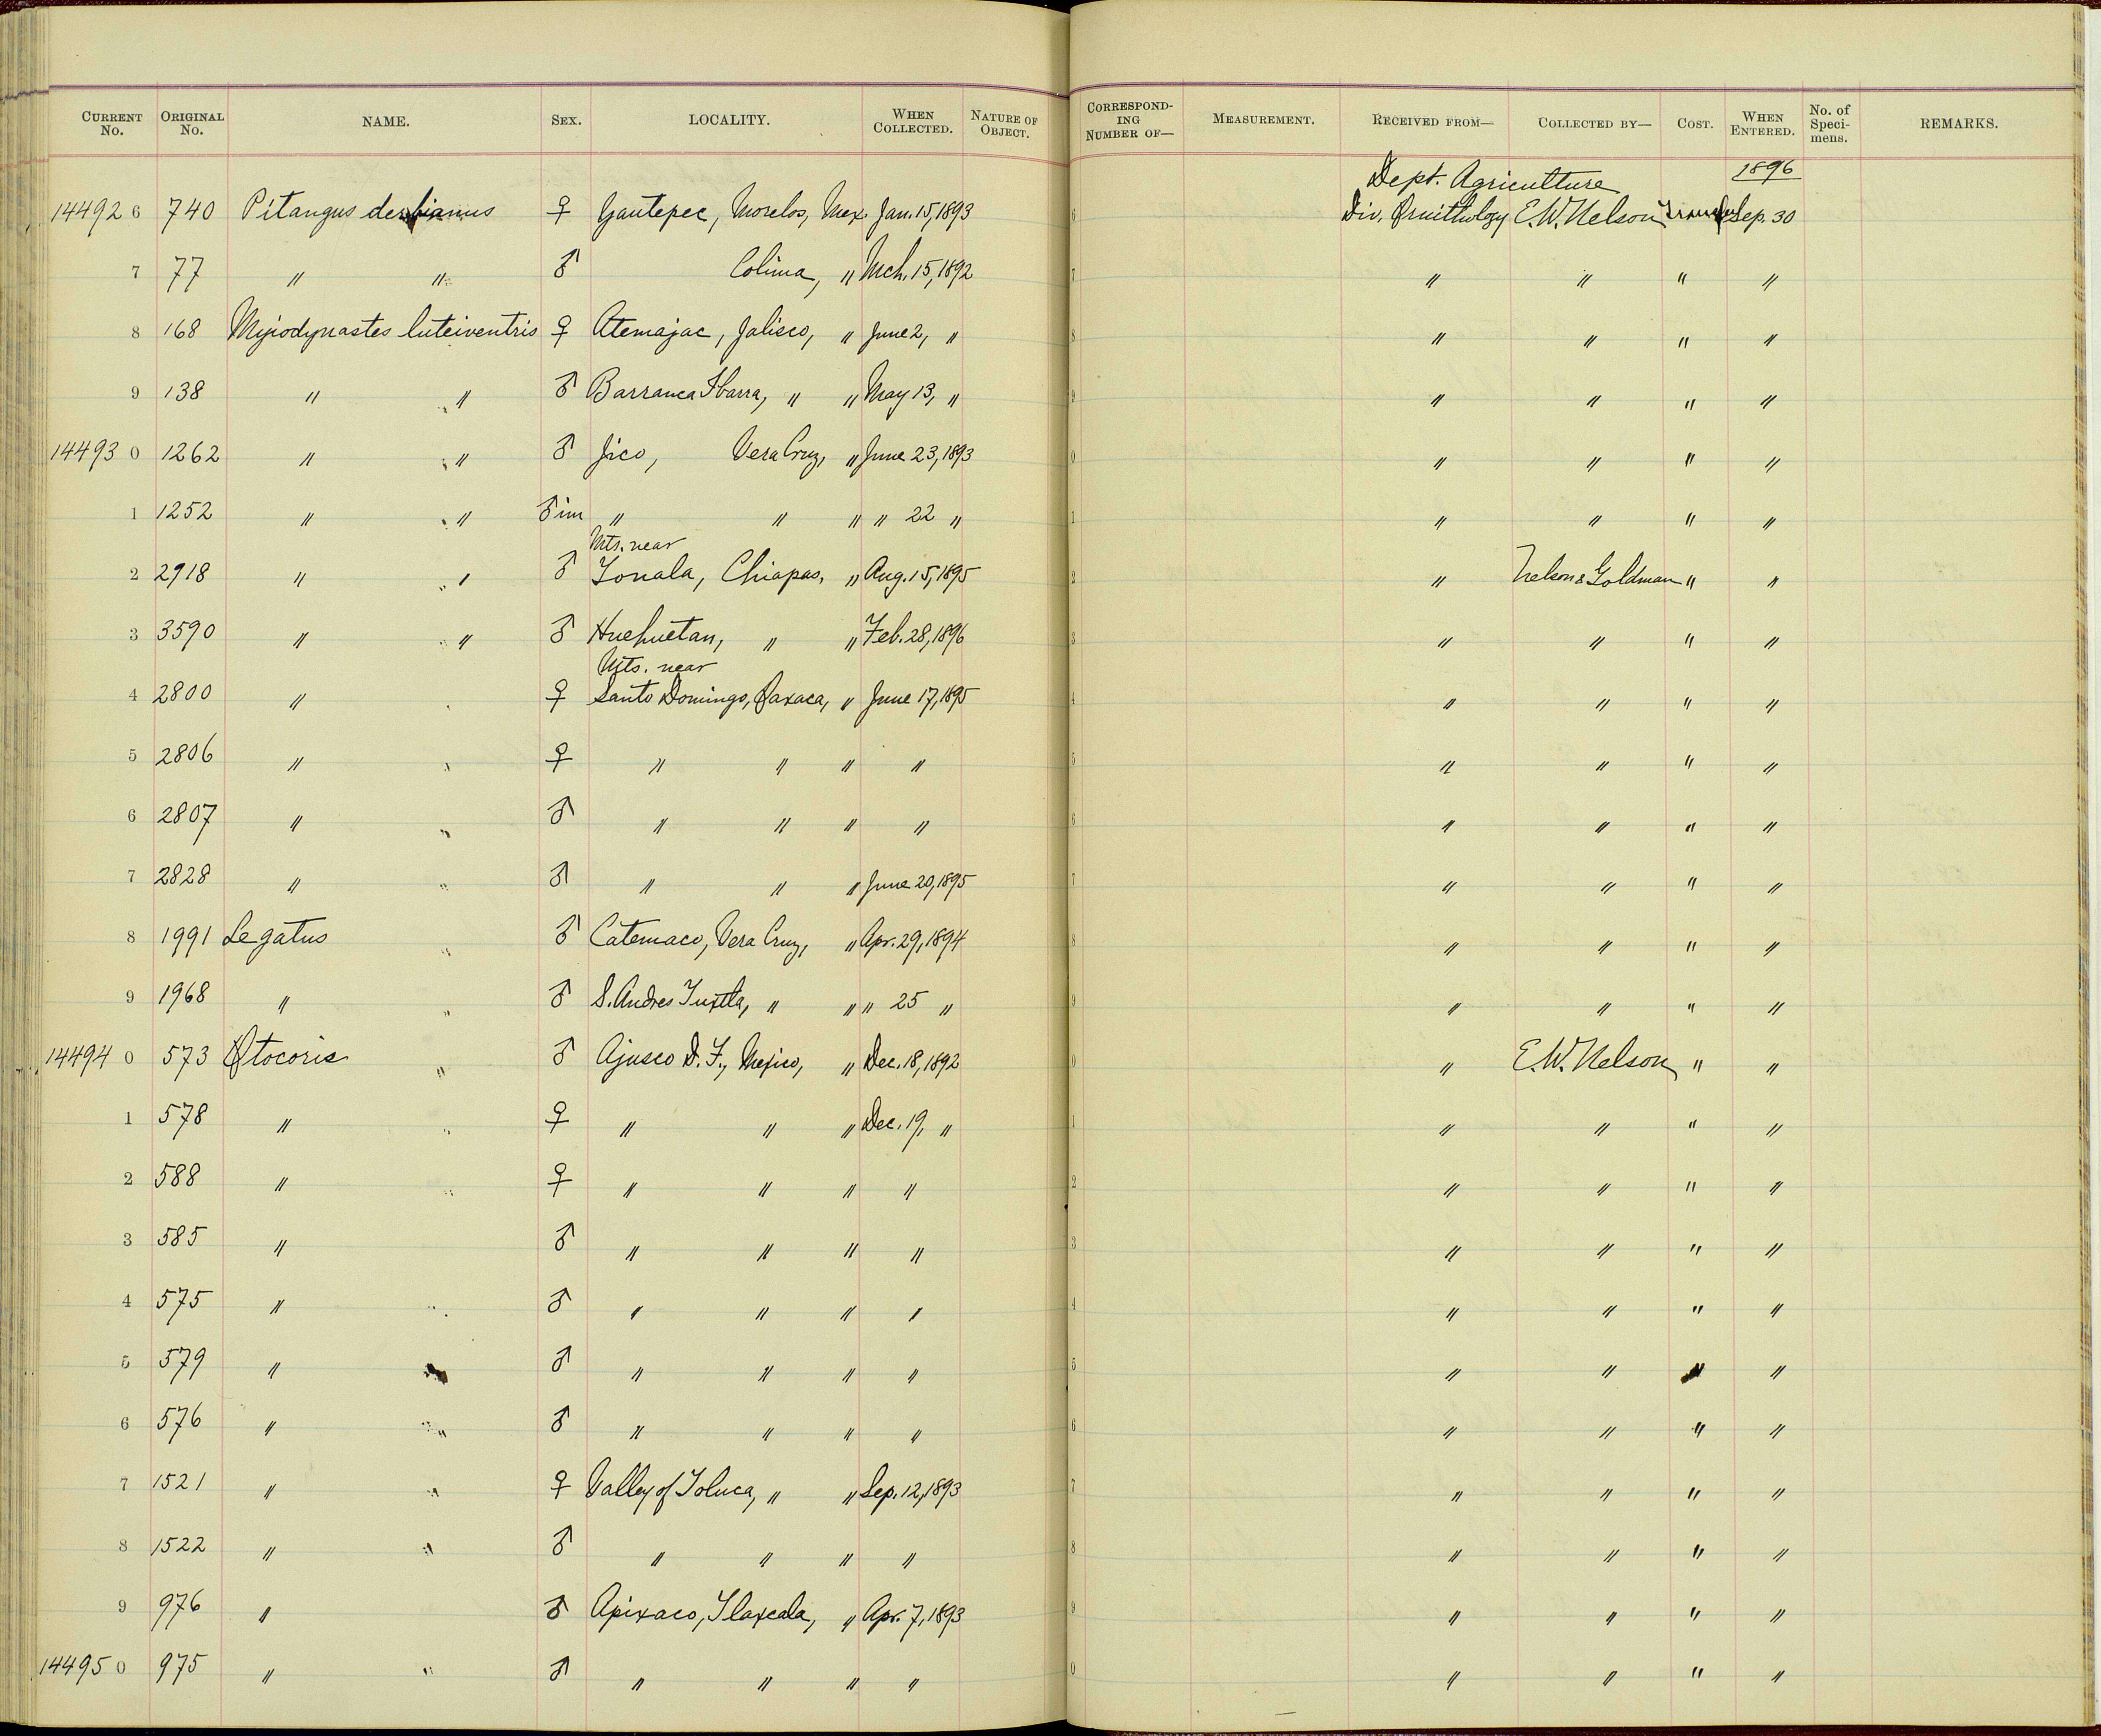 CURRENT No. ORIGINAL No. NAME. SEX. LOCALITY. WHEN COLLECTED. NATURE OF OBJECT. CORRESPONDING NUMBER OF— MEASUREMENT. RECEIVED FROM— COLLECTED BY— COST. WHEN ENTERED. No. of Specimens. REMARKS.
Dept. Agriculture 1896
14492 6 740 Pitangus derbianus ♀ Yautepec, Morelos, Mex. Jan. 15, 1893 6 Div. Ornithology E.W. Nelson Transfer Sep. 30
7 77 " " ♂ Colima, " Mch. 15, 1892 7 " " " "
8 168 Myiodynastes luteiventris ♀ Atemajac, Jalisco, " June 2, " 8 " " " "
9 138 " " ♂ Barranca Ibarra, " " May 13, " 9 " " " "
14493 0 1262 " " ♂ Jico, Vera Cruz, " June 23, 1893 0 " " " "
1 1252 " " ♂ im " " " " 22 " 1 " " " "
Mts. near
2 2918 " " ♂ Tonala, Chiapas, " Aug. 15, 1895 2 " Nelson & Goldman " "
3 3590 " " ♂ Huehuetan, " " Feb. 28, 1896 3 " " " "
Mts. near
4 2800 " ♀ Santo Domingo, Oaxaca, " June 17, 1895 4 " " " "
5 2806 " ♀ " " " " 5 " " " "
6 2807 " " ♂ " " " " 6 " " " "
7 2828 " " ♂ " " " June 20, 1895 7 " " " "
8 1991 Legatus " ♂ Catemaco, Vera Cruz, " Apr. 29, 1894 8 " " " "
9 1968 " " ♂ S. Andres Tuxtla, " " " 25 " 9 " " " "
14494 0 573 Otocoris " ♂ Ajusco D. F., Mexico, " Dec. 18, 1892 0 " E.W. Nelson " "
1 578 " " ♀ " " " Dec. 19, " 1 " " " "
2 588 " " ♀ " " " " 2 " " " "
3 585 " ♂ " " " " 3 " " " "
4 575 " " ♂ " " " " 4 " " " "
5 579 " " ♂ " " " " 5 " " " "
6 576 " " ♂ " " " " 6 " " " "
7 1521 " " ♀ Valley of Toluca, " " Sep. 12, 1893 7 " " " "
8 1522 " " ♂ " " " " 8 " " " "
9 976 " ♂ Apixaco, Tlaxcala, " Apr. 7, 1893 9 " " " "
14495 0 975 " " ♂ " " " " 0 " " " "